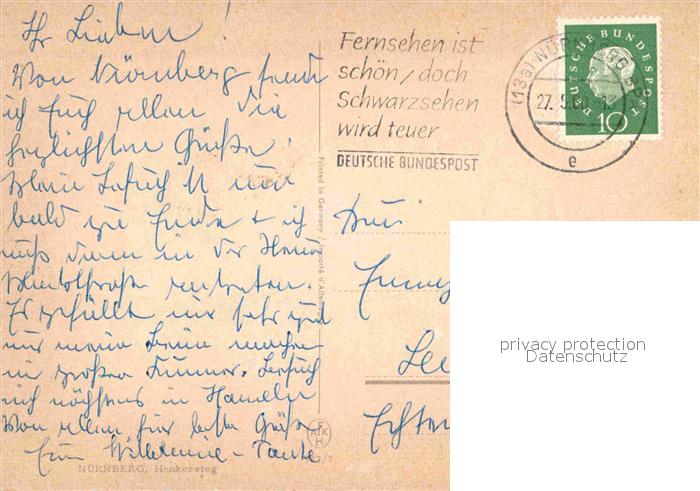 Ihr Lieben!
Von Nürnberg sende
ich Euch allen die
herzlichsten Grüße.
Mein Besuch ist nun
bald zu Ende + ich
muß dann in der
Es gefällt mir sehr gut
nur meine Beine machen
mir großen Kummer. Besuch
mich nächstens in Hameln
Von allen hier beste Grüße
Eure Tante
NÜRNBERG, Henkersteg
Printed in Germany / Importé d'Allemagne
Fernsehen ist
schön, doch
Schwarzsehen
wird teuer
DEUTSCHE BUNDESPOST
(13a) NÜRNBERG
27. 5.60
e
DEUTSCHE BUNDESPOST
10
privacy protection
Datenschutz